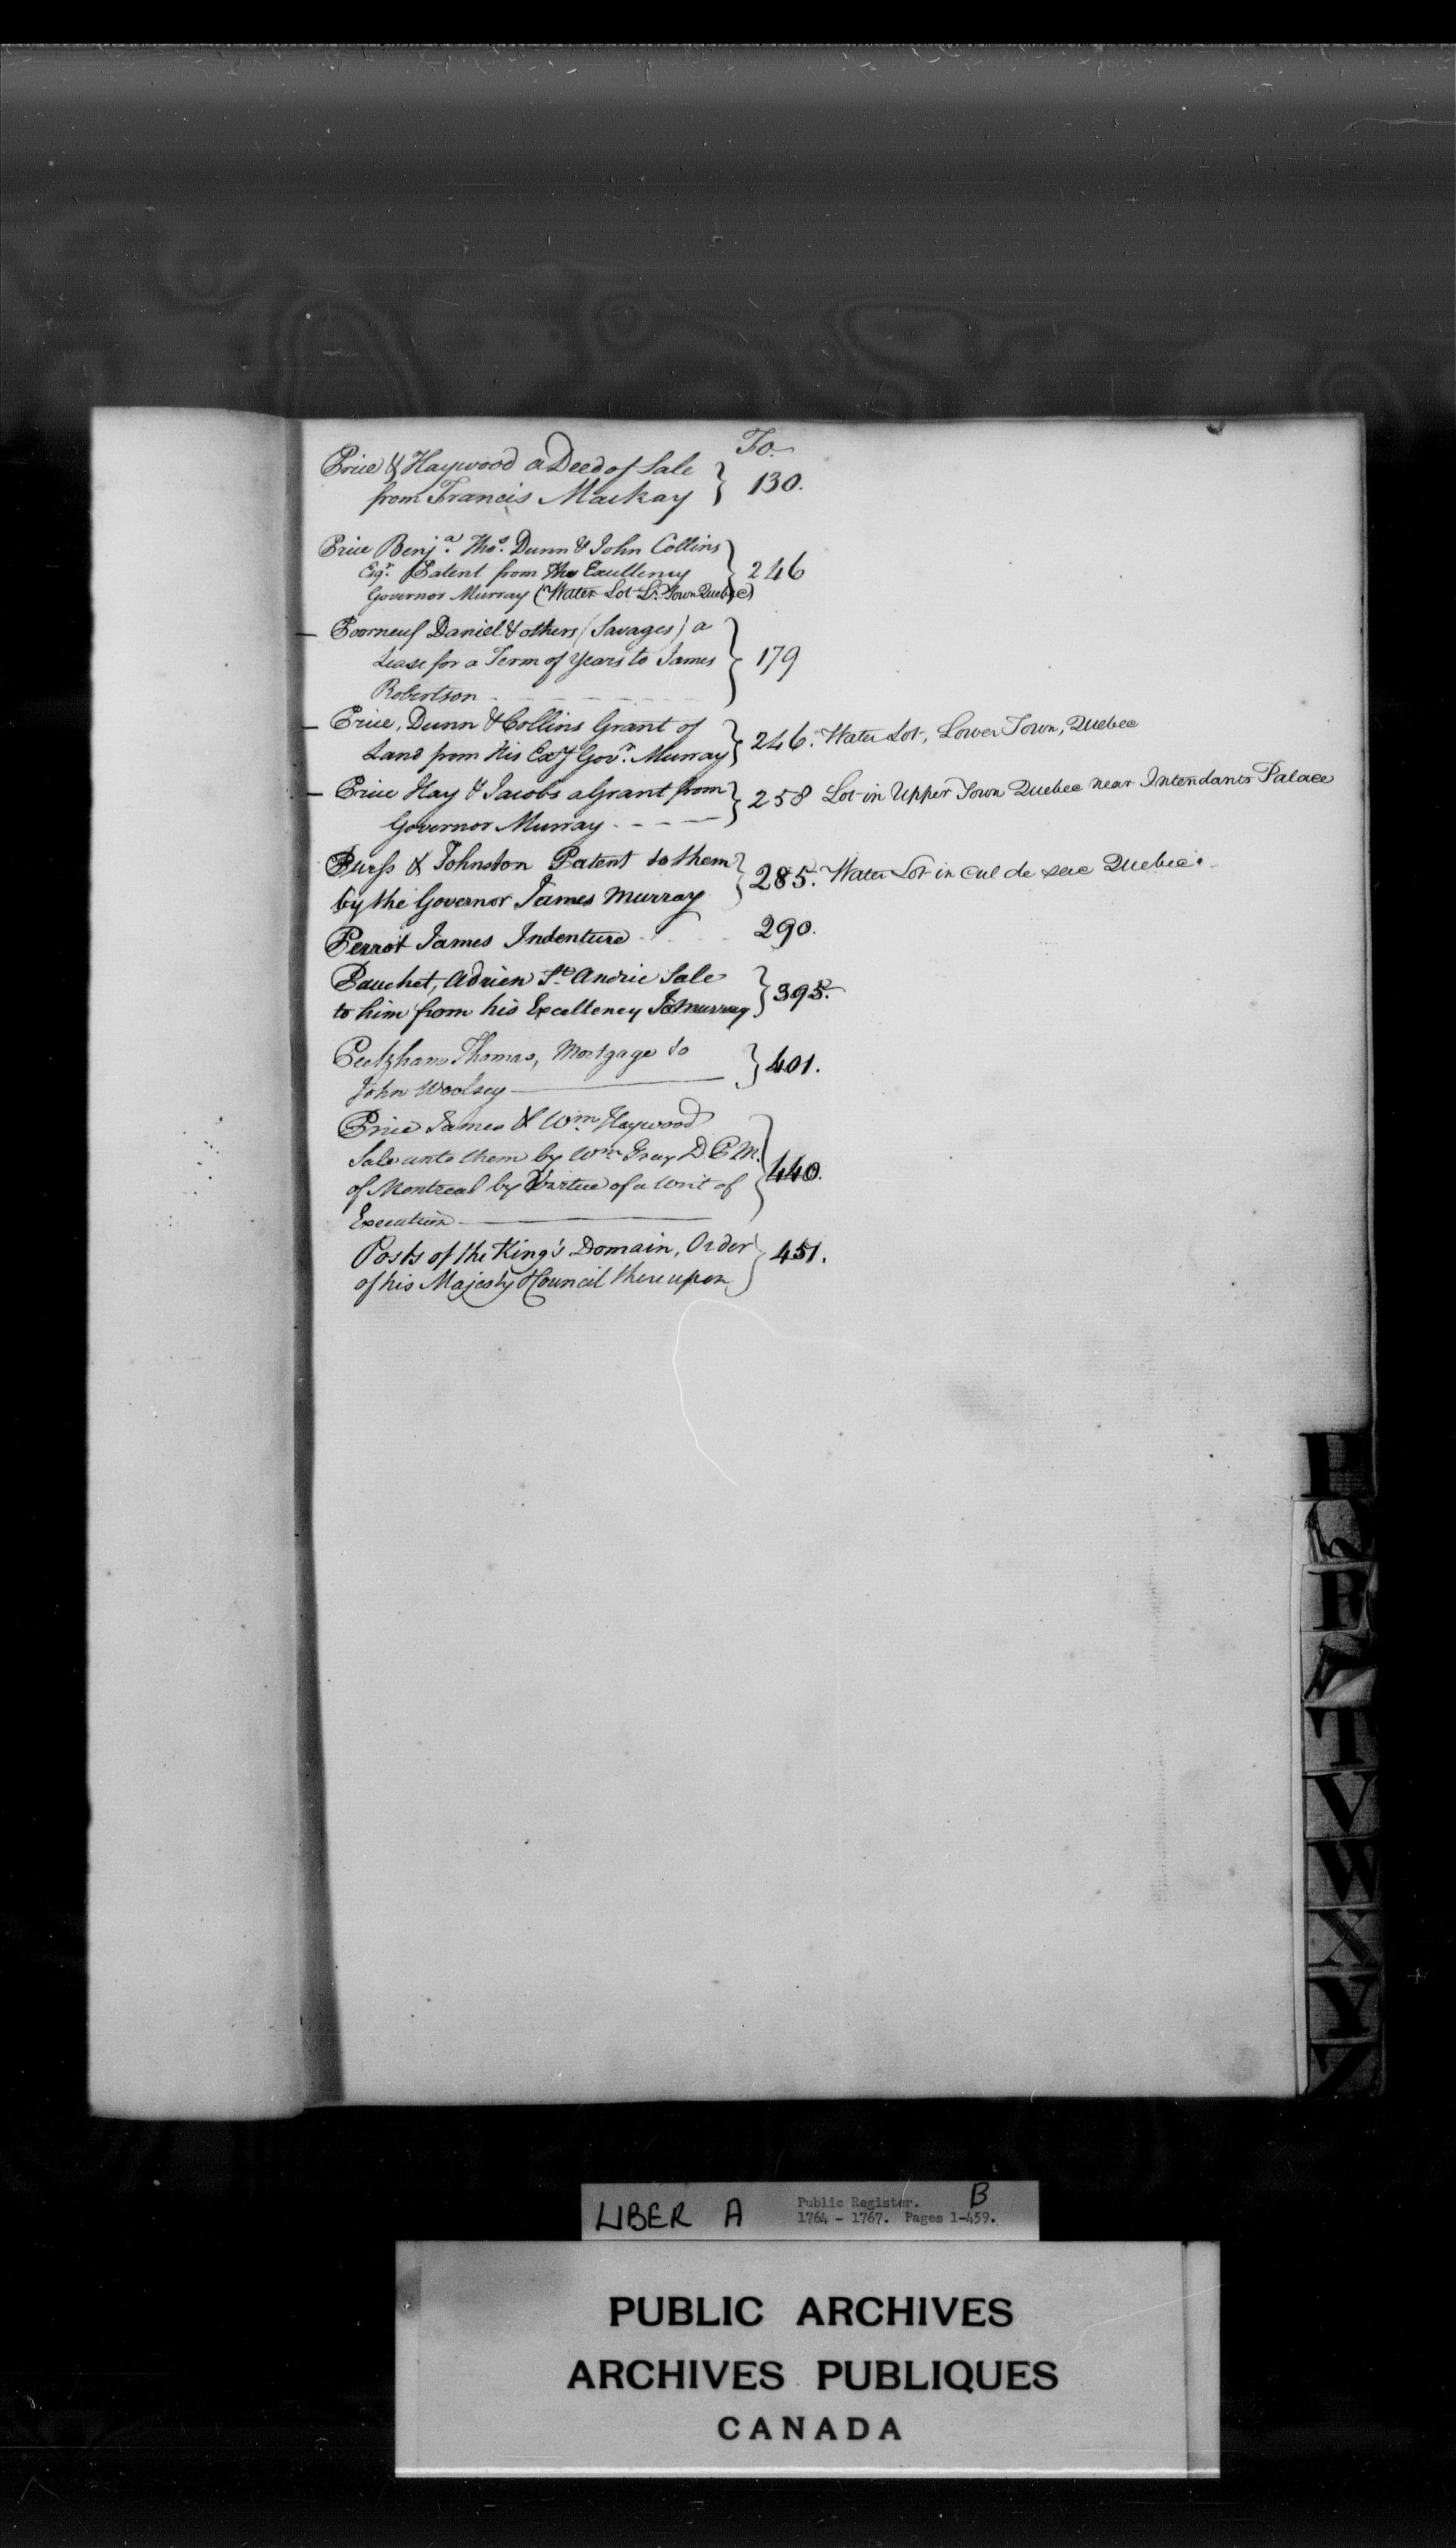 Fo.
Price & Haywood a Deed of Sale
from Francis Mackay } 130.
Price Benja. Thos. Dunn & John Collins
Esqr. Patent from the Excellency } 246
Governor Murray (Water Lot Lr. Town Quebec)
— Poorneuf Daniel & others (Savages) a
Lease for a Term of Years to James } 179
Robertson
— Price, Dunn & Collins Grant of
Land from His Exy. Govr. Murray } 246. Water Lot, Lower Town, Quebec
— Price Hay & Jacobs a Grant from } 258 Lot in Upper Town Quebec near Intendants Palace
Governor Murray
Purss & Johnston Patent to them
by the Governor James Murray } 285. Water Lot in Cul de sac Quebec.
Perrot James Indenture 290.
Pauchet, Adrien St. Andrie Sale
to him from his Excellency Js Murray } 395.
Peetzham Thomas, Mortgage to } 401.
John Woolsey
Price James & Wm. Haywood
Sale unto them by Wm. Gray D.P.M.
of Montreal by Virtue of a Writ of } 440.
Execution
Posts of the King's Domain, Order } 451.
of his Majesty & Council thereupon
P
Q
R
S
T
V
W
X
Y
Z
LIBER A Public Register. B
1764 - 1767. Pages 1-459.
PUBLIC ARCHIVES
ARCHIVES PUBLIQUES
CANADA